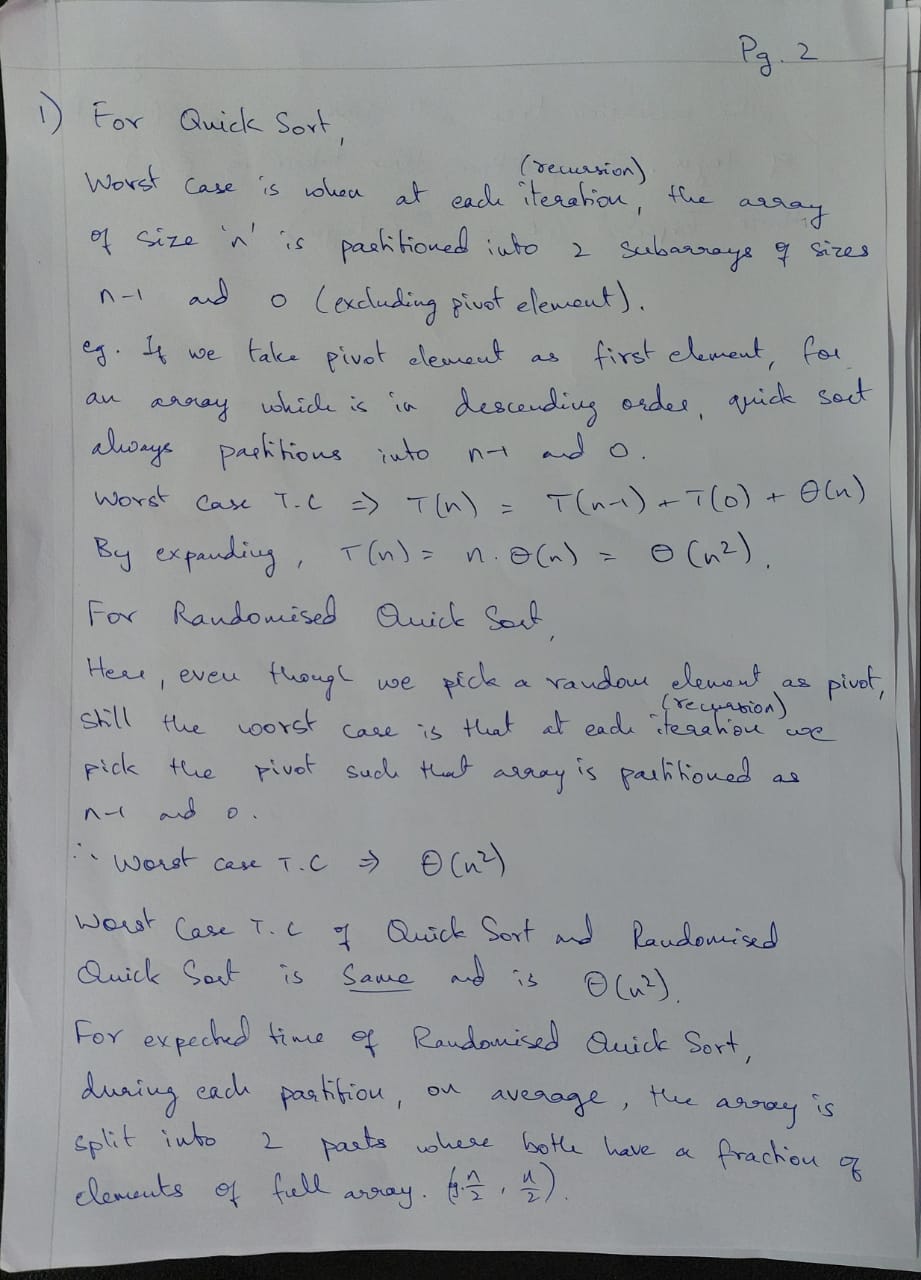 Pg. 2
1) For Quick Sort,
Worst case is when at each iteration, (recursion) the array
of size 'n' is partitioned into 2 subarrays of sizes
n-1 and 0 (excluding pivot element).
eg. If we take pivot element as first element, for
an array which is in descending order, quick sort
always partitions into n-1 and 0.
Worst case T.C ⇒ T(n) = T(n-1) + T(0) + Θ(n)
By expanding, T(n) = n.Θ(n) = Θ(n²).
For Randomised Quick Sort,
Here, even though we pick a random element as pivot,
still the worst case is that at each iteration (recursion) we
pick the pivot such that array is partitioned as
n-1 and 0.
∴ Worst case T.C ⇒ Θ(n²)
Worst Case T.C of Quick Sort and Randomised
Quick Sort is Same and is Θ(n²).
For expected time of Randomised Quick Sort,
during each partition, on average, the array is
split into 2 parts where both have a fraction of
elements of full array. (eg. n/2, n/2).